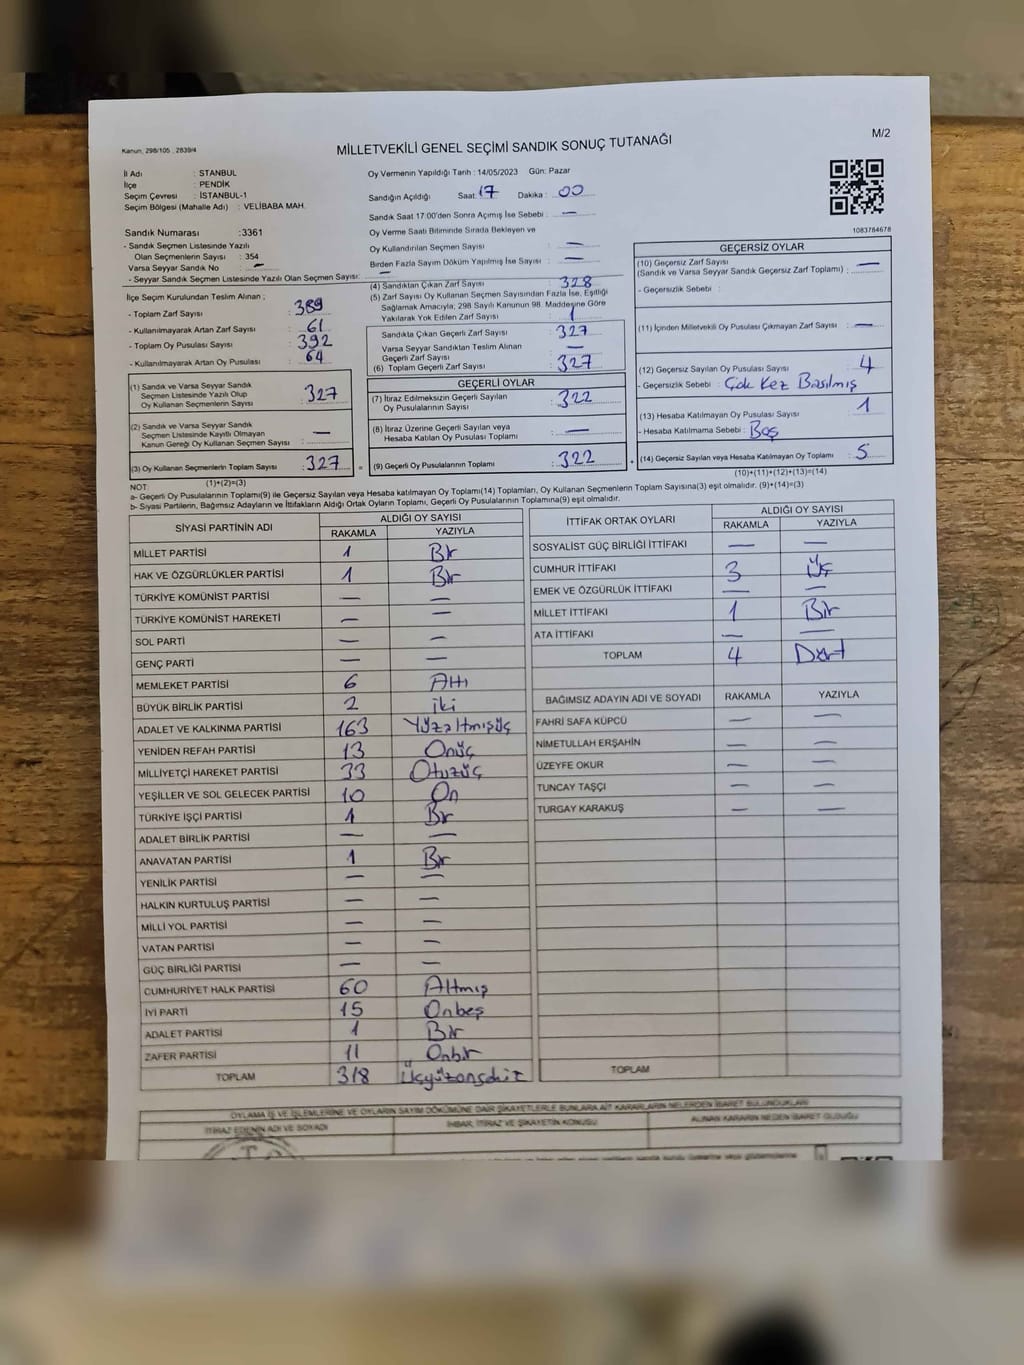 Kanun, 298/105 , 2839/4
MİLLETVEKİLİ GENEL SEÇİMİ SANDIK SONUÇ TUTANAĞI
M/2
İl Adı : STANBUL
İlçe : PENDİK
Seçim Çevresi : İSTANBUL-1
Seçim Bölgesi (Mahalle Adı) : VELİBABA MAH.
Sandık Numarası :3361
- Sandık Seçmen Listesinde Yazılı
Olan Seçmenlerin Sayısı : 354
Varsa Seyyar Sandık No —
- Seyyar Sandık Seçmen Listesinde Yazılı Olan Seçmen Sayısı: —
İlçe Seçim Kurulundan Teslim Alınan ;
- Toplam Zarf Sayısı : 389
- Kullanılmayarak Artan Zarf Sayısı : 61
- Toplam Oy Pusulası Sayısı : 392
- Kullanılmayarak Artan Oy Pusulası : 64
(1) Sandık ve Varsa Seyyar Sandık
Seçmen Listesinde Yazılı Olup
Oy Kullanan Seçmenlerin Sayısı : 327
(2) Sandık ve Varsa Seyyar Sandık
Seçmen Listesinde Kayıtlı Olmayan
Kanun Gereği Oy Kullanan Seçmen Sayısı : —
(3) Oy Kullanan Seçmenlerin Toplam Sayısı : 327
(1)+(2)=(3)
Oy Vermenin Yapıldığı Tarih : 14/05/2023 Gün: Pazar
Sandığın Açıldığı Saat: 17 Dakika : 00
Sandık Saat 17.00'den Sonra Açımış İse Sebebi : —
Oy Verme Saati Bitiminde Sırada Bekleyen ve
Oy Kullandırılan Seçmen Sayısı : —
Birden Fazla Sayım Döküm Yapılmış İse Sayısı : —
(4) Sandıktan Çıkan Zarf Sayısı : 328
(5) Zarf Sayısı Oy Kullanan Seçmen Sayısından Fazla İse, Eşitliği
Sağlamak Amacıyla, 298 Sayılı Kanunun 98. Maddesine Göre
Yakılarak Yok Edilen Zarf Sayısı : 1
Sandıkta Çıkan Geçerli Zarf Sayısı : 327
Varsa Seyyar Sandıktan Teslim Alınan
Geçerli Zarf Sayısı —
(6) Toplam Geçerli Zarf Sayısı : 327
GEÇERLİ OYLAR
(7) İtiraz Edilmeksizin Geçerli Sayılan
Oy Pusulalarının Sayısı : 322
(8) İtiraz Üzerine Geçerli Sayılan veya
Hesaba Katılan Oy Pusulası Toplamı : —
= (9) Geçerli Oy Pusulalarının Toplamı : 322
1083784678
GEÇERSİZ OYLAR
(10) Geçersiz Zarf Sayısı
(Sandık ve Varsa Seyyar Sandık Geçersiz Zarf Toplamı) : —
- Geçersizlik Sebebi :
(11) İçinden Milletvekili Oy Pusulası Çıkmayan Zarf Sayısı : —
(12) Geçersiz Sayılan Oy Pusulası Sayısı : 4
- Geçersizlik Sebebi : Çok Kez Basılmış
(13) Hesaba Katılmayan Oy Pusulası Sayısı : 1
- Hesaba Katılmama Sebebi : Boş
+ (14) Geçersiz Sayılan veya Hesaba Katılmayan Oy Toplamı : 5
(10)+(11)+(12)+(13)=(14)
NOT:
a- Geçerli Oy Pusulalarının Toplamı(9) ile Geçersiz Sayılan veya Hesaba katılmayan Oy Toplamı(14) Toplamları, Oy Kullanan Seçmenlerin Toplam Sayısına(3) eşit olmalıdır. (9)+(14)=(3)
b- Siyasi Partilerin, Bağımsız Adayların ve İttifakların Aldığı Ortak Oyların Toplamı, Geçerli Oy Pusulalarının Toplamına(9) eşit olmalıdır.
SİYASİ PARTİNİN ADI ALDIĞI OY SAYISI
RAKAMLA YAZIYLA
MİLLET PARTİSİ 1 Bir
HAK VE ÖZGÜRLÜKLER PARTİSİ 1 Bir
TÜRKİYE KOMÜNİST PARTİSİ — —
TÜRKİYE KOMÜNİST HAREKETİ — —
SOL PARTİ — —
GENÇ PARTİ — —
MEMLEKET PARTİSİ 6 Altı
BÜYÜK BİRLİK PARTİSİ 2 iki
ADALET VE KALKINMA PARTİSİ 163 Yüzaltmışüç
YENİDEN REFAH PARTİSİ 13 Onüç
MİLLİYETÇİ HAREKET PARTİSİ 33 Otuzüç
YEŞİLLER VE SOL GELECEK PARTİSİ 10 On
TÜRKİYE İŞÇİ PARTİSİ 1 Bir
ADALET BİRLİK PARTİSİ — —
ANAVATAN PARTİSİ 1 Bir
YENİLİK PARTİSİ — —
HALKIN KURTULUŞ PARTİSİ — —
MİLLİ YOL PARTİSİ — —
VATAN PARTİSİ — —
GÜÇ BİRLİĞİ PARTİSİ — —
CUMHURİYET HALK PARTİSİ 60 Altmış
İYİ PARTİ 15 Onbeş
ADALET PARTİSİ 1 Bir
ZAFER PARTİSİ 11 Onbir
TOPLAM 318 Üçyüzonsekiz
İTTİFAK ORTAK OYLARI ALDIĞI OY SAYISI
RAKAMLA YAZIYLA
SOSYALİST GÜÇ BİRLİĞİ İTTİFAKI — —
CUMHUR İTTİFAKI 3 Üç
EMEK VE ÖZGÜRLÜK İTTİFAKI — —
MİLLET İTTİFAKI 1 Bir
ATA İTTİFAKI — —
TOPLAM 4 Dört
BAĞIMSIZ ADAYIN ADI VE SOYADI RAKAMLA YAZIYLA
FAHRİ SAFA KÜPCÜ — —
NİMETULLAH ERŞAHİN — —
ÜZEYFE OKUR — —
TUNCAY TAŞÇI — —
TURGAY KARAKUŞ — —
TOPLAM
OYLAMA İŞ VE İŞLEMLERİNE VE OYLARIN SAYIM DÖKÜMÜNE DAİR ŞİKAYETLERLE BUNLARA AİT KARARLARIN NELERDEN İBARET BULUNDUKLARI
İTİRAZ EDENİN ADI VE SOYADI İHBAR, İTİRAZ VE ŞİKAYETİN KONUSU ALINAN KARARIN NEDEN İBARET OLDUĞU